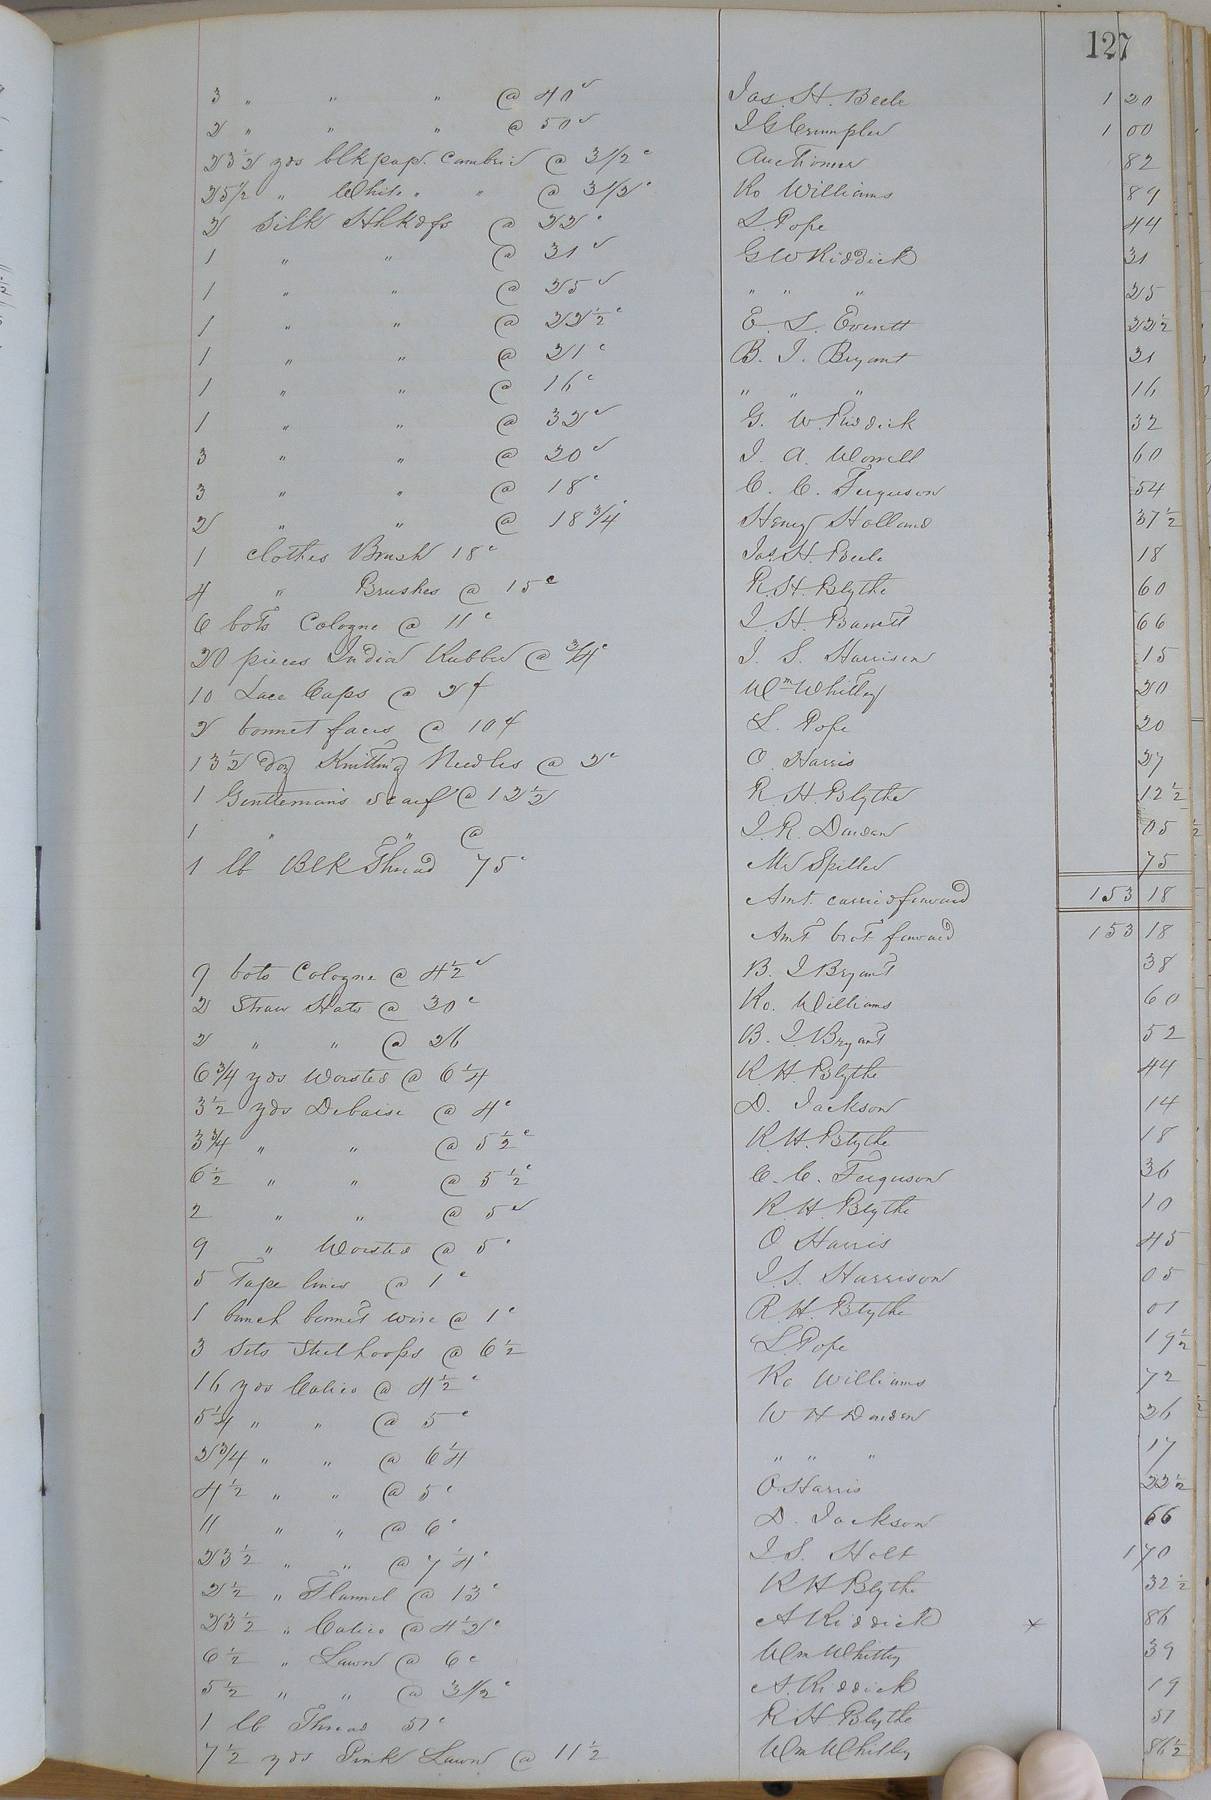 127
3 " " " @ 40c Jas. H. Beele 1 20
2 " " " @ 50c I G Crumpler 1 00
23 1/2 yds blk pap. Cambric @ 3 1/2c Auctioneer 82
25 1/2 " White " " @ 3 1/2c Ro Williams 89
2 Silk Hhkdfs @ 22c L. Pope 44
1 " " @ 31c G W Riddick 31
1 " " @ 25c " " " 25
1 " " @ 22 1/2c E. L. Everett 22 1/2
1 " " @ 21c B. I. Bryant 21
1 " " @ 16c " " " 16
1 " " @ 32c G. W. Riddick 32
3 " " @ 20c I. A. Worrell 60
3 " " @ 18c C. C. Ferguson 54
2 " " @ 18 3/4 Henry Holland 37 1/2
1 clothes Brush 18c Jas. H. Beele 18
4 " Brushes @ 15c R. H. Blythe 60
6 bots Cologne @ 11c I. H. Barrett 66
20 pieces India Rubber @ 3/4c I. S. Harrison 15
10 Lace Caps @ 2¢ Wm Whitley 20
2 bonnet faces @ 10¢ L. Pope 20
13 1/2 doz Knitting Needles @ 2c O. Harris 27
1 Gentleman's Scarf @ 12 1/2 R. H. Blythe 12 1/2
1 " " @ I. R. Darden 05
1 lb Blk Thread 75c Mr Spiller 75
Amt. carried forward 153 18
Amt brot forward 153 18
9 bots Cologne @ 4 1/2c B. I Bryant 38
2 Straw Hats @ 30c Ro. Williams 60
2 " " @ 26 B. I. Bryant 52
6 3/4 yds Worsted @ 6 1/4 R. H. Blythe 44
3 1/2 yds Debaise @ 4c D. Jackson 14
3 3/4 " " @ 5 1/2c R. H. Blythe 18
6 1/2 " " @ 5 1/2c C. C. Ferguson 36
2 " " @ 5c R. H. Blythe 10
9 " Worsted @ 5c O Harris 45
5 Tape lines @ 1c I. S. Harrison 05
1 bunch bonnet wire @ 1c R. H. Blythe 01
3 Sets Steel hoops @ 6 1/2 L. Pope 19 1/2
16 yds Calico @ 4 1/2c Ro Williams 72
5 1/4 " " @ 5c W H Darden 26
2 3/4 " " @ 6 1/4 " " " 17
4 1/2 " " @ 5c O. Harris 22 1/2
11 " " @ 6c D. Jackson 66
23 1/2 " " @ 7 1/4c I S. Holt 1 70
2 1/2 " Flannel @ 13c R H Blythe 32 1/2
23 1/2 " Calico @ 4 1/2c A Riddick x 86
6 1/2 " Lawn @ 6c Wm Whitley 39
5 1/2 " " @ 3 1/2c A. Riddick 19
1 lb Thread 51c R H Blythe 51
7 1/2 yds Pink Lawn @ 11 1/2 Wm Whitley 86 1/2